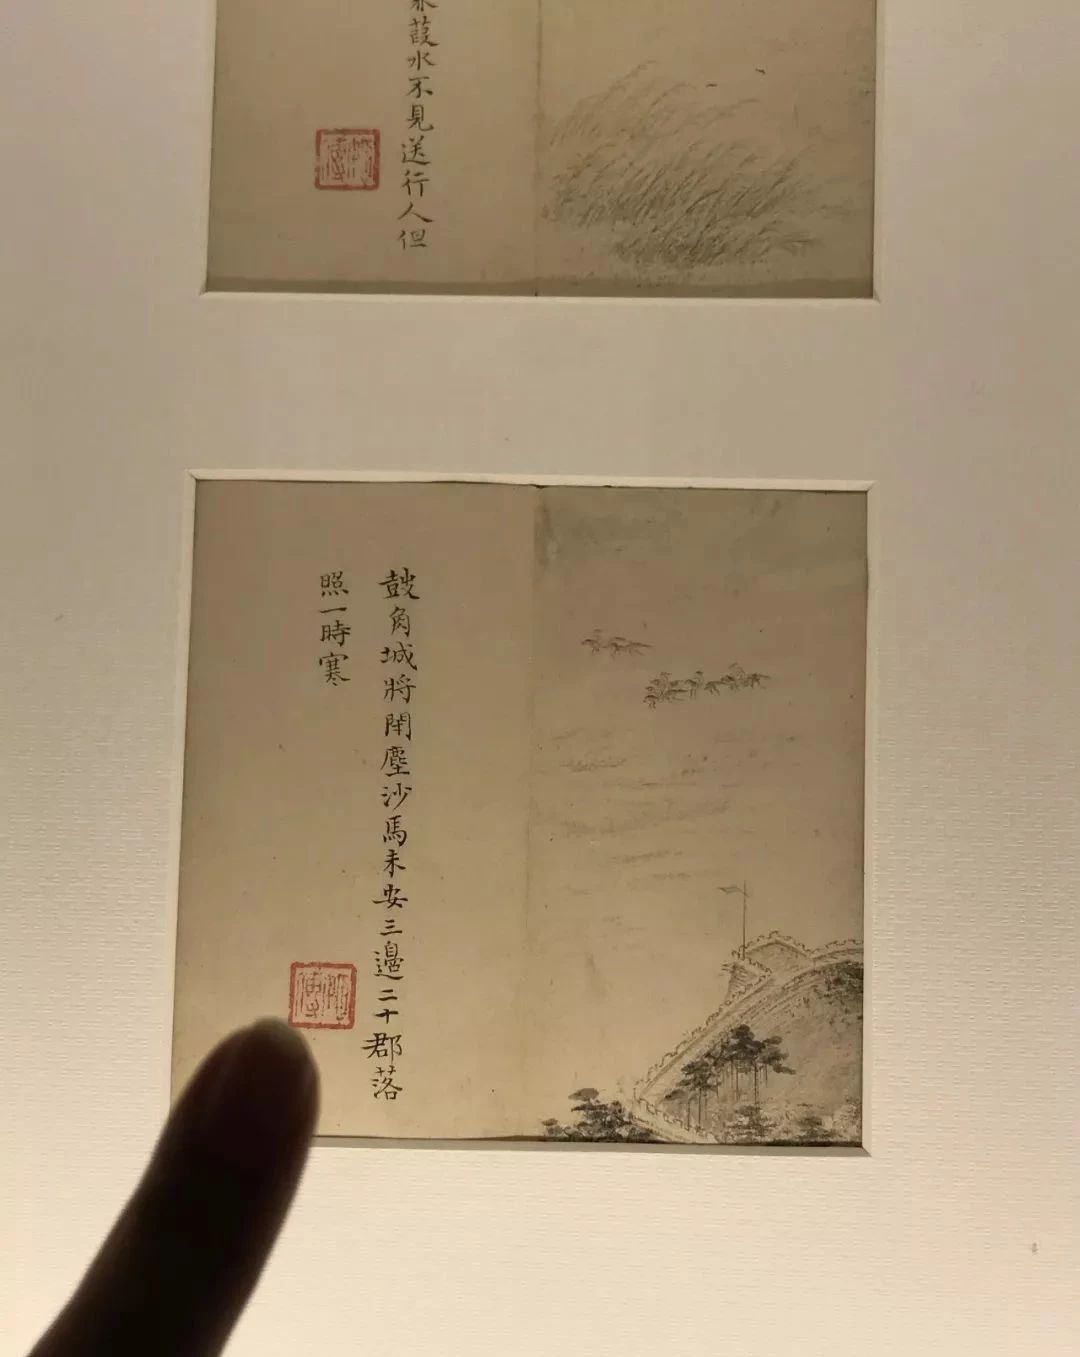 葭水不見送行人但
鼓角城將閉塵沙馬未安三邊二十郡落
照一時寒